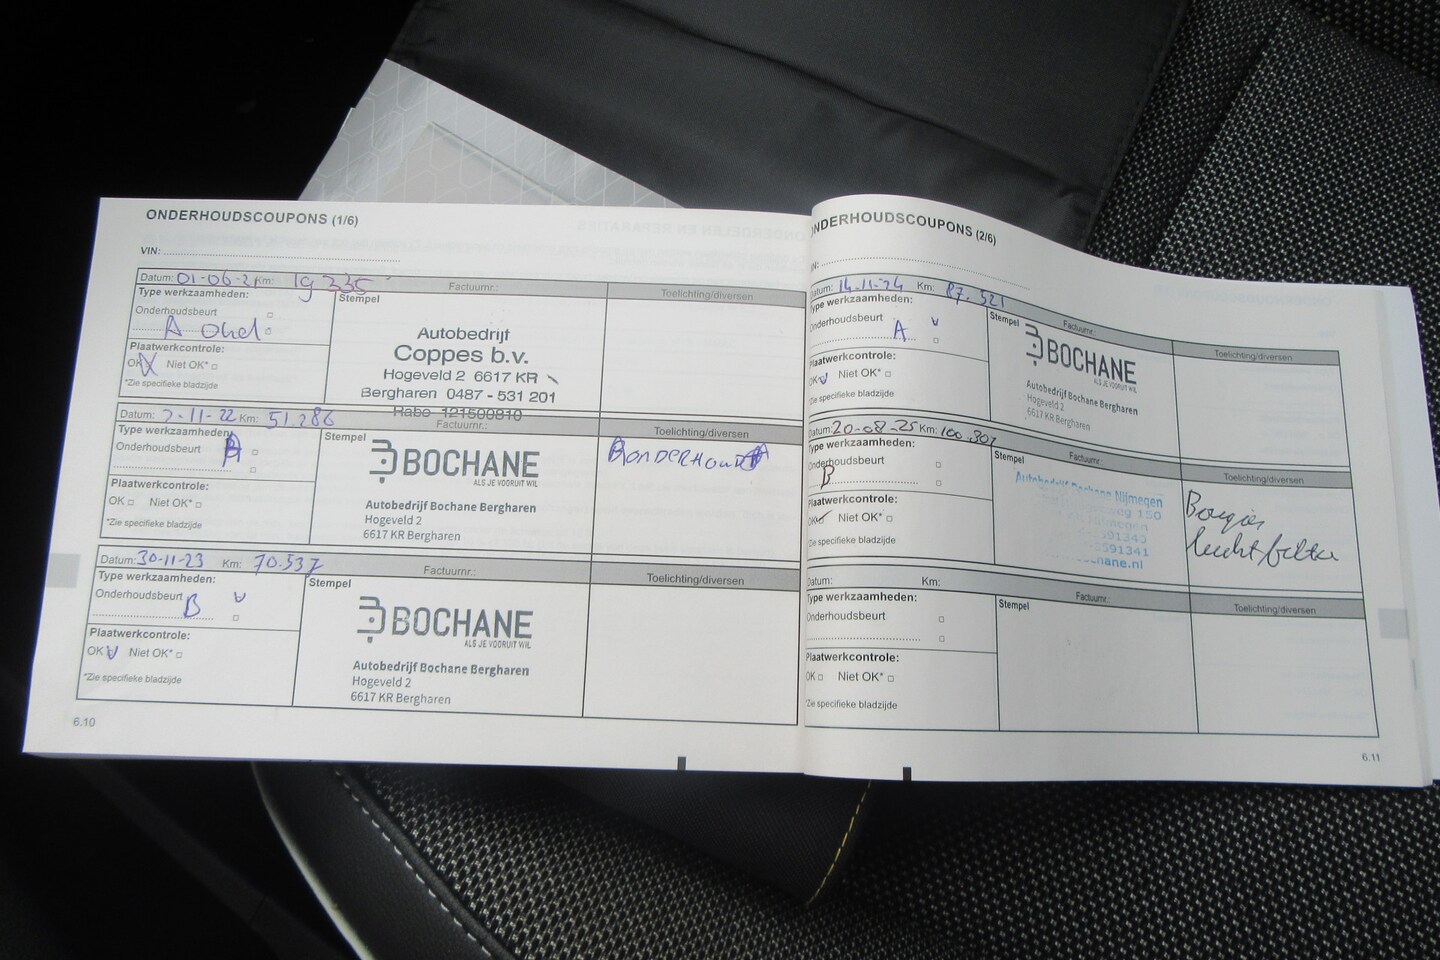 ONDERHOUDSCOUPONS (1/6)
VIN:
Datum: 01-06-21 Km: 19 335
Factuurnr.:
Toelichting/diversen
Type werkzaamheden:
Stempel
Onderhoudsbeurt
A ond
Plaatwerkcontrole:
OK Niet OK*
*Zie specifieke bladzijde
Autobedrijf
Coppes b.v.
Hogeveld 2 6617 KR
Bergharen 0487 - 531 201
Rabo 121500810
Datum: 2-11-22 Km: 51.286
Factuurnr.:
Toelichting/diversen
Type werkzaamheden:
Stempel
Onderhoudsbeurt
Plaatwerkcontrole:
OK Niet OK*
*Zie specifieke bladzijde
BOCHANE
ALS JE VOORUIT WIL
Autobedrijf Bochane Bergharen
Hogeveld 2
6617 KR Bergharen
Datum: 30-11-23 Km: 70.537
Factuurnr.:
Toelichting/diversen
Type werkzaamheden:
Stempel
Onderhoudsbeurt
B
Plaatwerkcontrole:
OK Niet OK*
*Zie specifieke bladzijde
BOCHANE
ALS JE VOORUIT WIL
Autobedrijf Bochane Bergharen
Hogeveld 2
6617 KR Bergharen
6.10
NDERHOUDSCOUPONS (2/6)
IN:
Datum: 14-11-24 Km: 87.521
Factuurnr.:
Toelichting/diversen
Type werkzaamheden:
Stempel
Onderhoudsbeurt
A
Plaatwerkcontrole:
OK Niet OK*
*Zie specifieke bladzijde
BOCHANE
ALS JE VOORUIT WIL
Autobedrijf Bochane Bergharen
Hogeveld 2
6617 KR Bergharen
Datum: 20-08-25 Km: 100.307
Factuurnr.:
Toelichting/diversen
Type werkzaamheden:
Stempel
Onderhoudsbeurt
B
Plaatwerkcontrole:
OK Niet OK*
*Zie specifieke bladzijde
Autobedrijf Bochane Nijmegen
weg 150
591341
chane.nl
Bougies
luchtfilter
Datum: Km:
Factuurnr.:
Toelichting/diversen
Type werkzaamheden:
Stempel
Onderhoudsbeurt
Plaatwerkcontrole:
OK Niet OK*
*Zie specifieke bladzijde
6.11